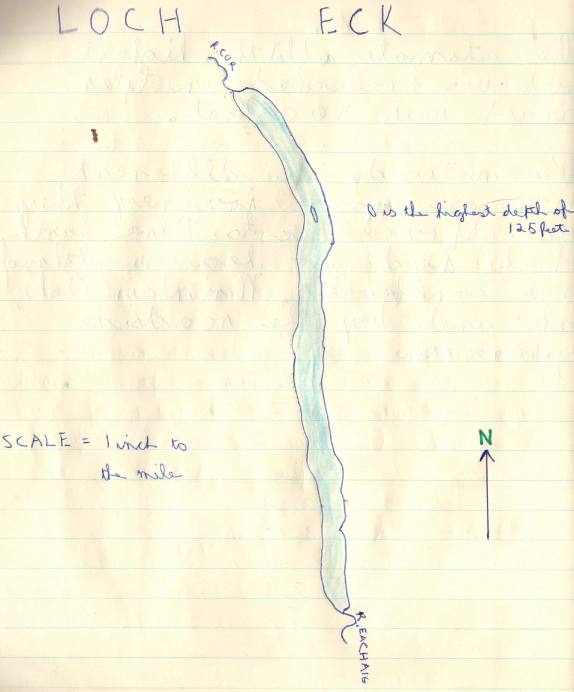 LOCH ECK
R. CUR
0 is the highest depth of
125 feet
SCALE = 1 inch to
the mile
N
R. EACHAIG